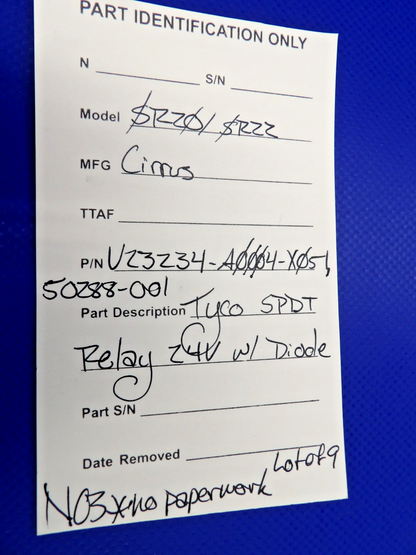 PART IDENTIFICATION ONLY
N ________ S/N ________
Model SR20/ SR22
MFG Cirrus
TTAF
P/N V23234-A0004-X051,
50288-001
Part Description Tyco SPDT
Relay 24V w/ Diode
Part S/N
Date Removed Lot of 9
NO3 no paperwork